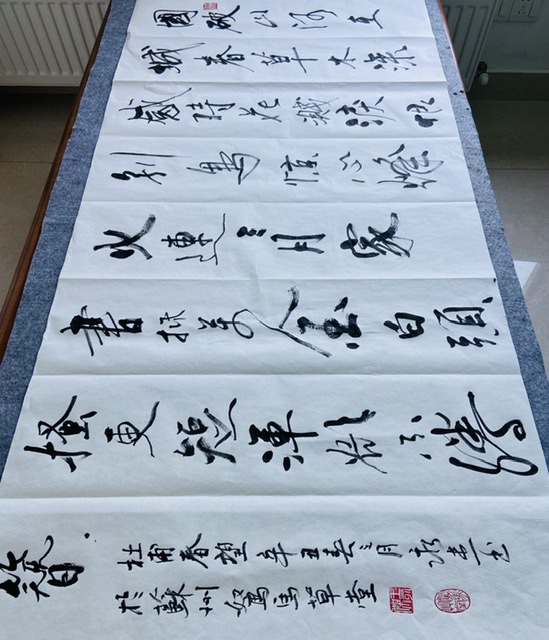 國破山河在
城春草木深
感時花濺淚恨
別鳥惊心烽
火連三月家
書抵萬金白頭
搔更短渾欲不勝
簪
杜甫春望辛丑三月
於蘇州草堂